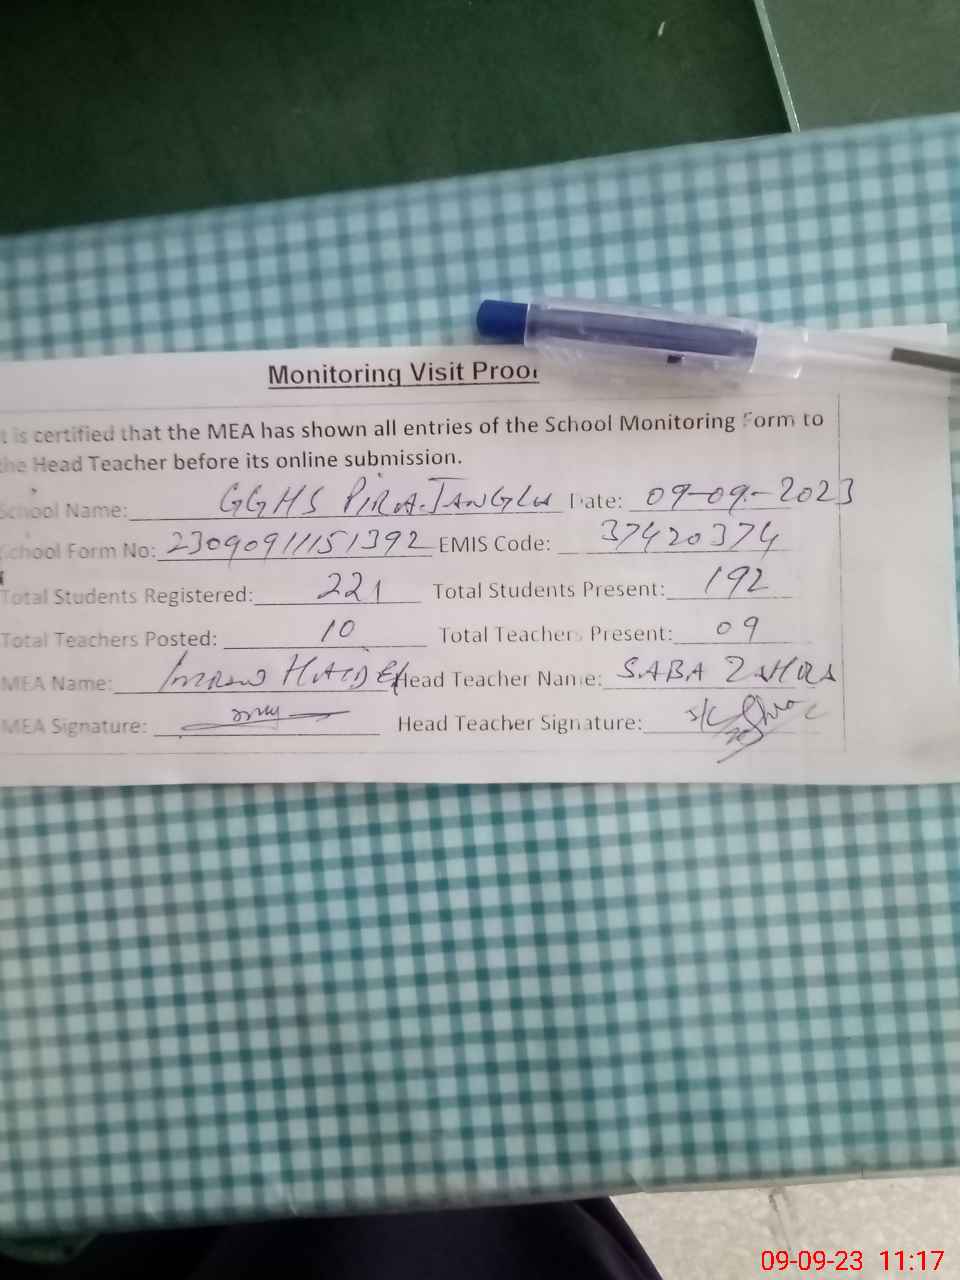 Monitoring Visit Proof
It is certified that the MEA has shown all entries of the School Monitoring Form to
the Head Teacher before its online submission.
School Name: GGHS PIRA JANGLA Date: 09-09-2023
School Form No: 23090911151392 EMIS Code: 37420374
Total Students Registered: 221 Total Students Present: 192
Total Teachers Posted: 10 Total Teachers Present: 09
MEA Name: IMRAN HAIDER Head Teacher Name: SABA ZAHRA
MEA Signature: Head Teacher Signature:
09-09-23 11:17